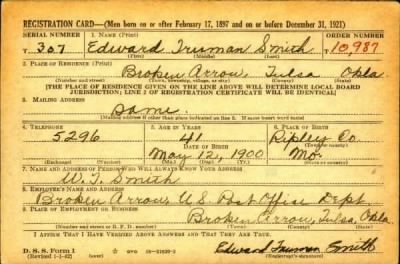 REGISTRATION CARD—(Men born on or after February 17, 1897 and on or before December 31, 1921)
SERIAL NUMBER 1. NAME (Print) ORDER NUMBER
T 307 Edward Truman Smith T10,987
(First) (Middle) (Last)
2. PLACE OF RESIDENCE (Print)
Broken Arrow, Tulsa Okla
(Number and street) (Town, township, village, or city) (County) (State)
[THE PLACE OF RESIDENCE GIVEN ON THE LINE ABOVE WILL DETERMINE LOCAL BOARD
JURISDICTION; LINE 2 OF REGISTRATION CERTIFICATE WILL BE IDENTICAL]
3. MAILING ADDRESS
Same
[Mailing address if other than place indicated on line 2. If same insert word same]
4. TELEPHONE 5. AGE IN YEARS 6. PLACE OF BIRTH
5296 41 Ripley Co.
DATE OF BIRTH (Town or county)
May 12, 1900 Mo.
(Exchange) (Number) (Mo.) (Day) (Yr.) (State or country)
7. NAME AND ADDRESS OF PERSON WHO WILL ALWAYS KNOW YOUR ADDRESS
W. T. Smith
8. EMPLOYER'S NAME AND ADDRESS
Broken Arrow, U.S. Post Office Dept
9. PLACE OF EMPLOYMENT OR BUSINESS
Broken Arrow, Tulsa, Okla.
(Number and street or R. F. D. number) (Town) (County) (State)
I AFFIRM THAT I HAVE VERIFIED ABOVE ANSWERS AND THAT THEY ARE TRUE.
D. S. S. Form 1 Edward Truman Smith
(Revised 1-1-42) (over) (Registrant's signature)